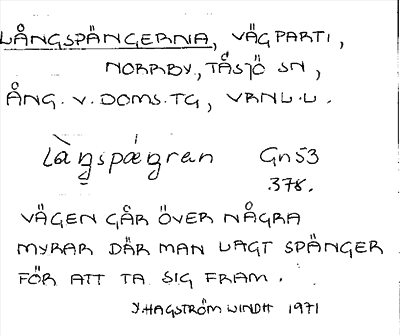 LÅNGSPÄNGERNA, VÄGPARTI,
NORRBY, TÅSJÖ SN,
ÅNG. V. DOMS. TG, VRNL.L.
Gn53
378.
VÄGEN GÅR ÖVER NÅGRA
MYRAR DÄR MAN LAGT SPÄNGER
FÖR ATT TA SIG FRAM.
HAGSTRÖM 1971